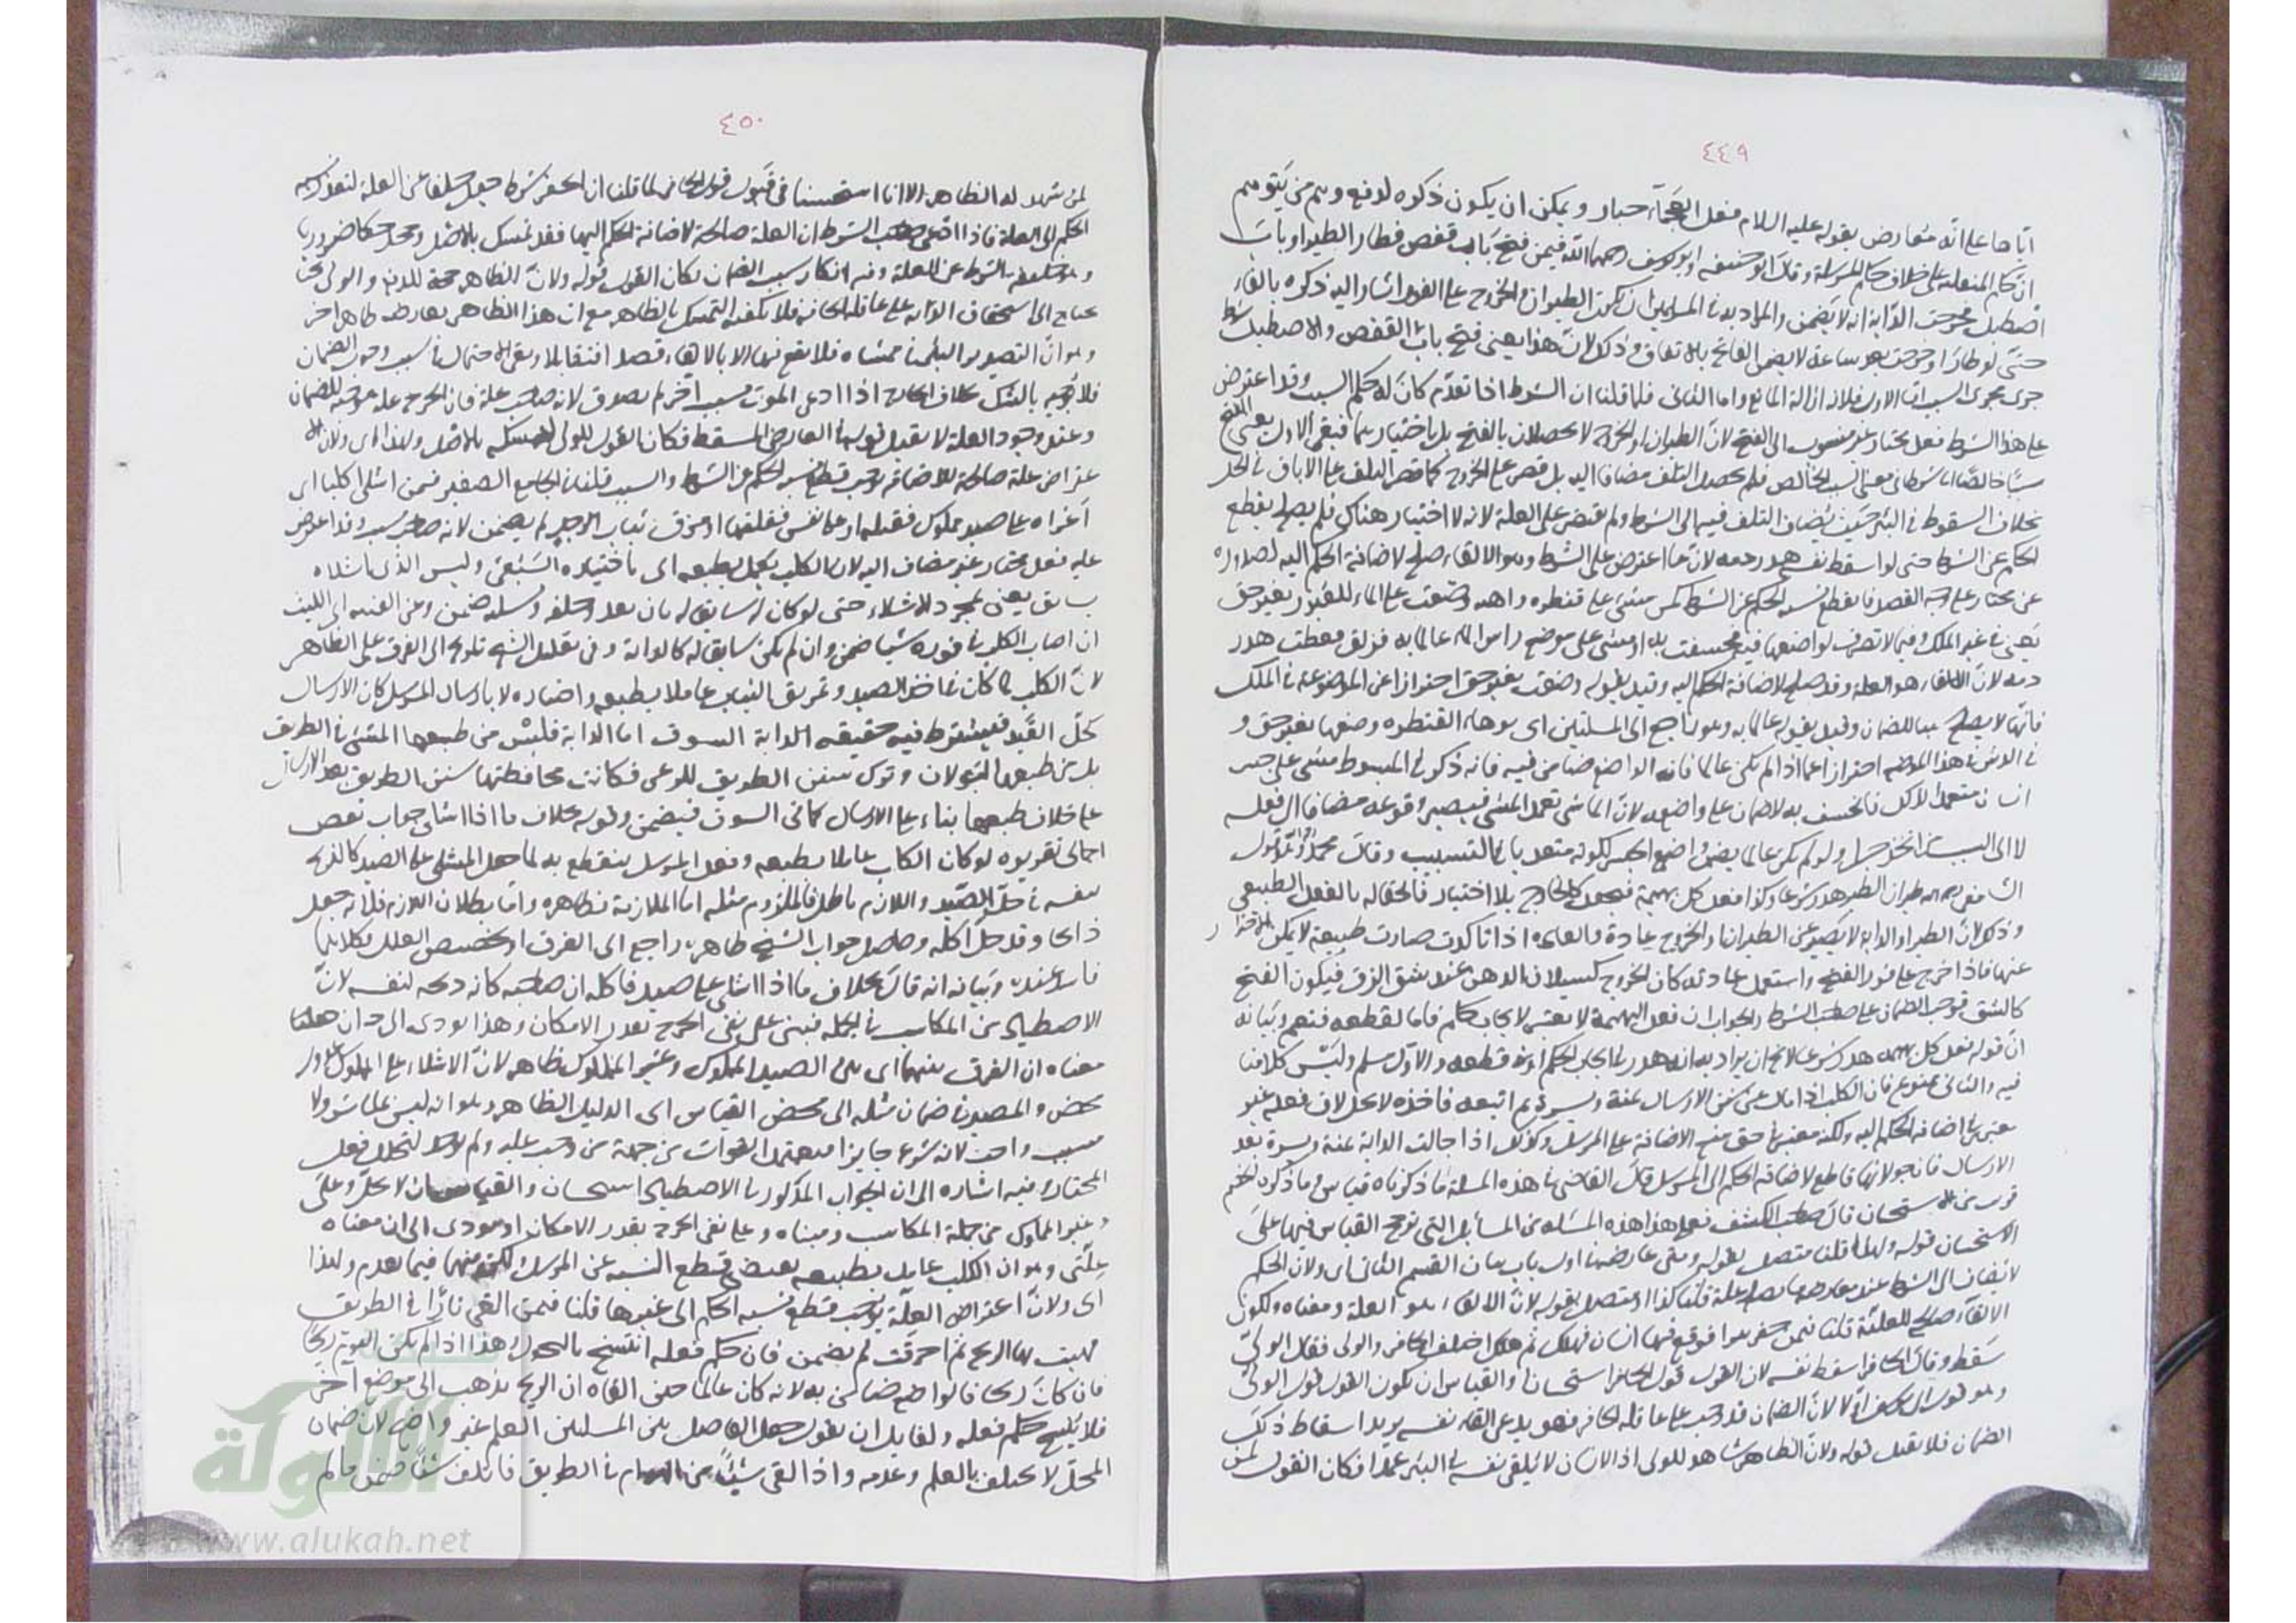 ٤٤٩
اياها على انه معارض بقوله عليه السلام فعل العجماء جبار ويمكن ان يكون ذكره لدفع وهم من يتوهم
ان حكم المنفلتة على خلاف حكم المرسلة وقال ابو حنيفة وابو يوسف رحمهما الله فيمن فتح باب قفص فطار الطير او باب
اصطبل فخرجت الدابة انه لا يضمن والمراد به في المسئلتين ان يكون الطيران والخروج على الفور اشار اليه ذكره بالفاء
حتى لو طار او خرجت بعد ساعة لا يضمن الفاتح بالاتفاق وذلك لان هذا يعني فتح باب القفص والاصطبل شرط
جرى مجرى السبب اما الاول فلانه ازالة المانع واما الثاني فلما قلنا ان الشرط اذا تقدم كان له حكم السبب وقد اعترض
على هذا الشرط فعل مختار غير منسوب الى الفتح لان الطيران والخروج لا يحصلان بالفتح بل باختيارهما فبقي الاول يعني الفتح
سببا خالصا اي شرطا في معنى السبب الخالص فلم يحصل التلف مضافا اليه بل قصر على الخروج كما قصر التلف على الاباق في الحل
بخلاف السقوط في البئر حيث يضاف التلف فيه الى الشرط ولم يقتصر على العلة لانه لا اختيار هناك فلم يصلح لقطع
الحكم عن الشرط حتى لو اسقط نفسه هدر دمه لان ما اعترض على الشرط وهو الالقاء صلح لاضافة الحكم اليه لصدوره
عن مختار على وجه القصد فانقطع نسبة الحكم عن الشرط كمن مشى على قنطرة واهية وضعت على الماء للعبور بغير حق
يعني في غير الملك وفيما لا تصرف لواضعها فيه فخسفت به او مشى على موضع رش الماء عالما به فزلق فعطب هدر
دمه لان الالقاء هو العلة وقد صلح لاضافة الحكم اليه وقيد بقوله وضعت بغير حق احترازا عن الموضوعة في الملك
فانها لا يصلح سببا للضمان وقيد بقوله عالما به وهو راجع الى المسئلتين اي بوهاء القنطرة وضعها بغير حق و
في الرش في هذا الموضع احترازا عما اذا لم يكن عالما فان الواضع ضامن فيه فانه ذكر في المبسوط مشى على جسر
انسان متعمدا لذلك فانخسف به لا ضمان على واضعه لان الماشي تعمد المشي فيصير وقوعه مضافا الى فعله
لا الى السبب اتخذ جسرا ولو لم يكن عالما يضمن واضع الجسر لكونه متعديا في التسبيب وقال محمد وهو قول
الشافعي رحمه الله طيران الطير هدر شرعا وكذا فعل كل بهيمة فيجعل كالخارج بلا اختيار فالحقاه بالفعل الطبيعي
وذلك لان الطير او الدابة لا يصبر عن الطيران والخروج عادة والعادة اذا تاكدت صارت طبيعة لا يمكن الاحتراز
عنها فاذا خرج على فور الفتح واستعمل عادته كان الخروج كسيلان الدهن عند شق الزق فيكون الفتح
كالشق فوجب الضمان على صاحب الشرط والجواب ان فعل البهيمة لا يعتبر لايجاب حكم فاما لقطعه فنعم وبيانه
ان قوله فعل كل بهيمة هدر شرعا لا يخ ان يراد به انه هدر في ايجاب الحكم او في قطعه والاول مسلم وليس كلامنا
فيه والثاني ممنوع فان الكلب اذا مال عن سنن الارسال يمنة ويسرة ثم اتبعه فاخذه لا يحل لان فعله غير
معتبر في اضافة الحكم اليه ولكنه معتبر في حق منع الاضافة على المرسل وكذلك اذا جالت الدابة يمنة ويسرة بعد
الارسال فان جولانها قاطع لاضافة الحكم الى المرسل قال القاضي في هذه المسئلة ما ذكرناه قياس وما ذكره الخصم
قريب من الاستحسان قال صاحب الكشف فعلى هذا هذه المسئلة من المسائل التي ترجح القياس فيها على
الاستحسان قوله ولهذا قلنا متصل بقوله ومتى عارضها اول باب بيان القسم الثاني اي ولان الحكم
لا يضاف الى الشرط عند معارضة ما يصلح علة قلنا كذا او متصل بقوله لان الالقاء هو العلة ومعناه ولكون
الالقاء صالح للعلية قلنا فيمن حفر بئرا فوقع فيها انسان فهلك ثم اختلف الحافر والولي فقال الولي
سقط وقال الحافر اسقط نفسه لان القول قول الحافر استحسانا والقياس ان يكون القول قول الولي
وهو قول ابي يوسف اولا لان الضمان قد وجب على عاقلة الحافر فهو يدعي القاء نفسه يريد اسقاط ذلك
الضمان فلا يقبل قوله ولان الظاهر شاهد للولي اذ الانسان لا يلقي نفسه في البئر عمدا فكان القول لمن
٤٥٠
لمن شهد له الظاهر الا انا استحسنا في قبول قول الحافر لما قلنا ان الحفر شرط جعل خلفا عن العلة لتعذر نسبة
الحكم الى العلة فاذا ادعى صاحب الشرط ان العلة صالحة لاضافة الحكم اليها فقد تمسك بالاصل وجحد حكما ضروريا
وهو خلفية الشرط عن العلة وفيه انكار سبب الضمان فكان القول قوله ولان الظاهر حجة للدفع والولي محتا
يحتاج الى استحقاق الدية على عاقلة الحافر فلا يكفيه التمسك بالظاهر مع ان هذا الظاهر يعارضه ظاهر اخر
وهو ان البصير يرى البئر في ممشاه فلا يقع فيها الا بالالقاء قصدا فتقابلا وبقي الاحتمال في سبب وجوب الضمان
فلا يجب بالشك بخلاف الجارح اذا ادعى الموت بسبب اخر لم يصدق لانه صاحب علة فان الجرح علة موجبة للضمان
وعند وجود العلة لا يقبل قوله في العارض المسقط فكان القول للولي لتمسكه بالاصل ولهذا اي ولان الا
عتراض علة صالحة للاضافة يوجب قطع نسبة الحكم عن الشرط والسبب قلنا في الجامع الصغير فيمن اشلى كلبا اي
اغراه على صيد مملوك فقتله او على نفس فقتلها او مزق ثياب الرجل لم يضمن لانه صاحب سبب وقد اعترض
عليه فعل مختار غير مضاف اليه لان الكلب يعمل بطبعه اي باختياره السبعي وليس الذي اشلاه
بسائق يعني بمجرد الاشلاء حتى لو كان له سائق له بان يعدو خلفه ونسله ضمن وعن الفقيه ابي الليث
ان اصاب الكلب في فوره شيئا ضمن وان لم يكن سائقا له كالدابة وفي تعليل الشيخ تلويح الى الفرق على الظاهر
لان الكلب لما كان في اخذ الصيد وتمزيق الثياب عاملا بطبعه واختياره لا بارسال المرسل كان الارسال
كحل القيد فيشترط فيه حقيقة الدابة السوق اما الدابة فليس من طبعها المشي في الطريق
بل من طبعها الجولان وترك سنن الطريق للرعي فكانت محافظتها سنن الطريق بعد الارسال
على خلاف طبعها بناء على الارسال كما في السوق فيضمن وقوله بخلاف ما اذا اشلى جواب نقض
اجمالي تقريره لو كان الكلب عاملا بطبعه وفعل المرسل ينقطع به لما حل المشلى على الصيد كالذبح
بنفسه في حل الصيد واللازم باطل فالملزوم مثله اما الملازمة فظاهرة واما بطلان اللازم فلانه جعل
ذابحا وقد حل اكله وحاصل جواب الشيخ ظاهره راجع الى الفرق او تخصيص العلل وكلاهما
فاسد عنده وبيانه انه قال بخلاف ما اذا اشلى على صيد فاكله ان صاحبه كانه ذبحه بنفسه لان
الاصطياد من المكاسب في الجملة فبني على نفي الحرج بقدر الامكان وهذا يؤدي الى ان هذا
معناه ان الفرق بينهما اي بين الصيد المملوك وغير المملوك ظاهر لان الاشلاء على المملوك عدوان
محض والمصير في ضمان مثله الى محض القياس اي الدليل الظاهر وهو انه ليس بمباشر ولا
مسبب واحد لانه شرع جايزا من جهة من وجب عليه ولم يوجد لتخلل فعل
المختار وفيه اشارة الى ان الجواب المذكور في الاصطياد استحسان والقياس ان لا يحل وعلى
غير المملوك من جملة المكاسب ومبناه على نفي الحرج بقدر الامكان او مؤدى الى ان معناه
علتي وهو ان الكلب عامل بطبعه يقتضي قطع النسبة عن المرسل فيهما فيما تقدم ولهذا
اي ولان اعتراض العلة يوجب قطع نسبة الحكم الى غيرها قلنا فيمن القى نارا في الطريق
فهبت بها الريح ثم احرقت لم يضمن فان حكم فعله انتسخ بالتحول وهذا اذا لم يكن اليوم ريحا
فان كان ريحا فالواضع ضامن به لانه كان عالما حين القاه ان الريح يذهب الى موضع آخر
فلا ينسخ حكم فعله ولقايل ان يقول جعل الفاصل بين المسئلتين العلم غير واضح لان ضمان
المحل لا يختلف بالعلم وعدمه واذا القى شيئا من الهوام في الطريق فاتلف شيئا ضمن ما لم
الألوكة
www.alukah.net